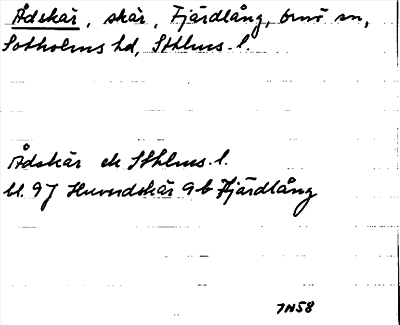 Ådskär, skär, Fjärdlång, Ornö sn,
Sotholms hd, Sthlms. l.
Ådskär ek Sthlms. l.
bl. 97 Huvudskär 9b Fjärdlång
7N58